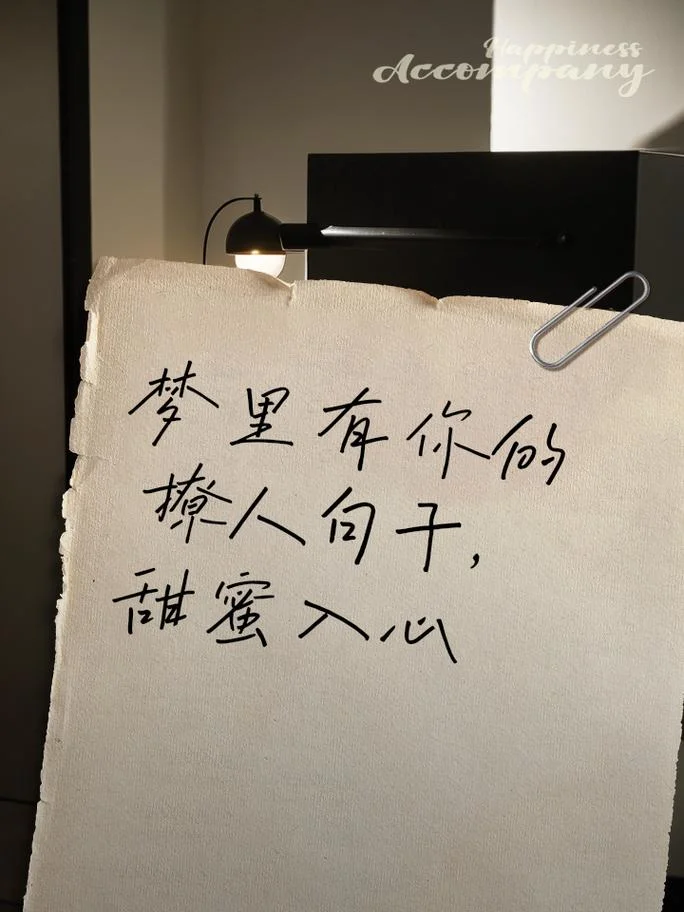 Happiness
Accompany
梦里有你的
撩人句子,
甜蜜入心